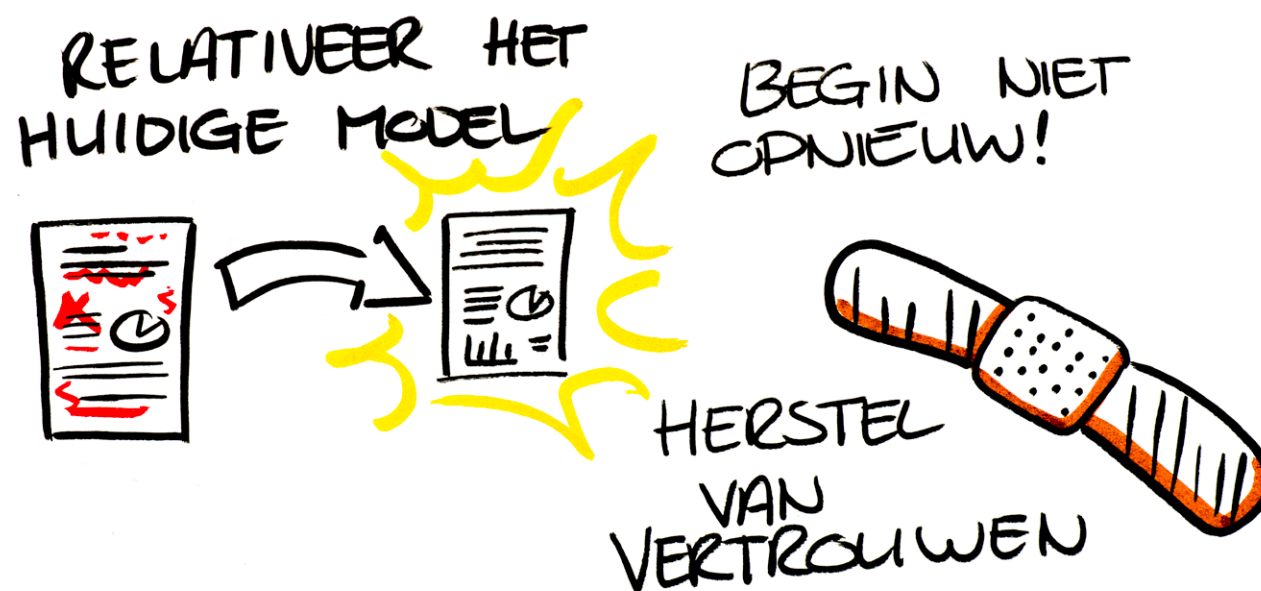 RELATIVEER HET
HUIDIGE MODEL
BEGIN NIET
OPNIEUW!
HERSTEL
VAN
VERTROUWEN